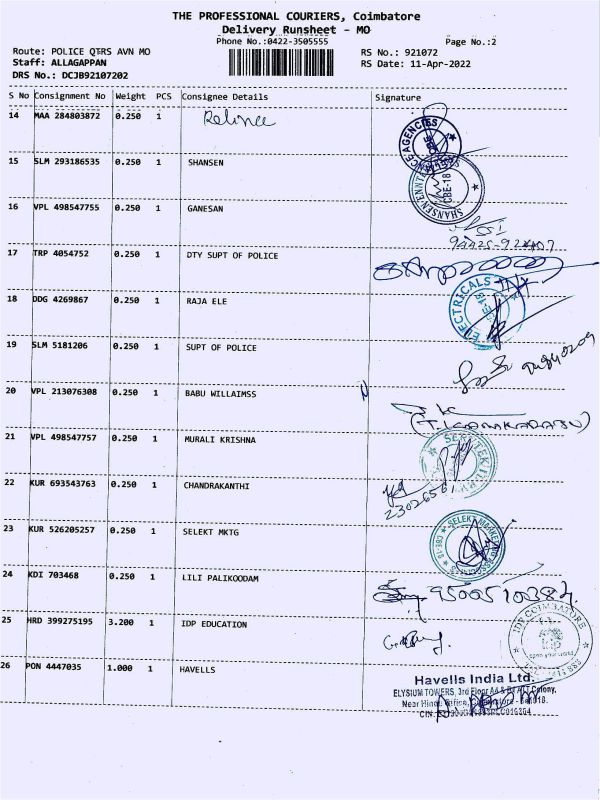 THE PROFESSIONAL COURIERS, Coimbatore
Delivery Runsheet - MO
Phone No.:0422-3505555
Page No.:2
Route: POLICE QTRS AVN MO
RS No.: 921072
Staff: ALLAGAPPAN
RS Date: 11-Apr-2022
DRS No.: DCJB92107202
S No Consignment No Weight PCS Consignee Details Signature
14 MAA 284803872 0.250 1 Reliance
15 SLM 293186535 0.250 1 SHANSEN
16 VPL 498547755 0.250 1 GANESAN
17 TRP 4054752 0.250 1 DTY SUPT OF POLICE
18 DDG 4269867 0.250 1 RAJA ELE
ELECTRICALS
19 SLM 5181206 0.250 1 SUPT OF POLICE
20 VPL 213076308 0.250 1 BABU WILLAIMSS
21 VPL 498547757 0.250 1 MURALI KRISHNA
22 KUR 693543763 0.250 1 CHANDRAKANTHI
23 KUR 526205257 0.250 1 SELEKT MKTG
24 KDI 703468 0.250 1 LILI PALIKOODAM
25 HRD 399275195 3.200 1 IDP EDUCATION
IDP COIMBATORE
26 PON 4447035 1.000 1 HAVELLS
Havells India Ltd.
ELYSIUM TOWERS, 3rd Floor